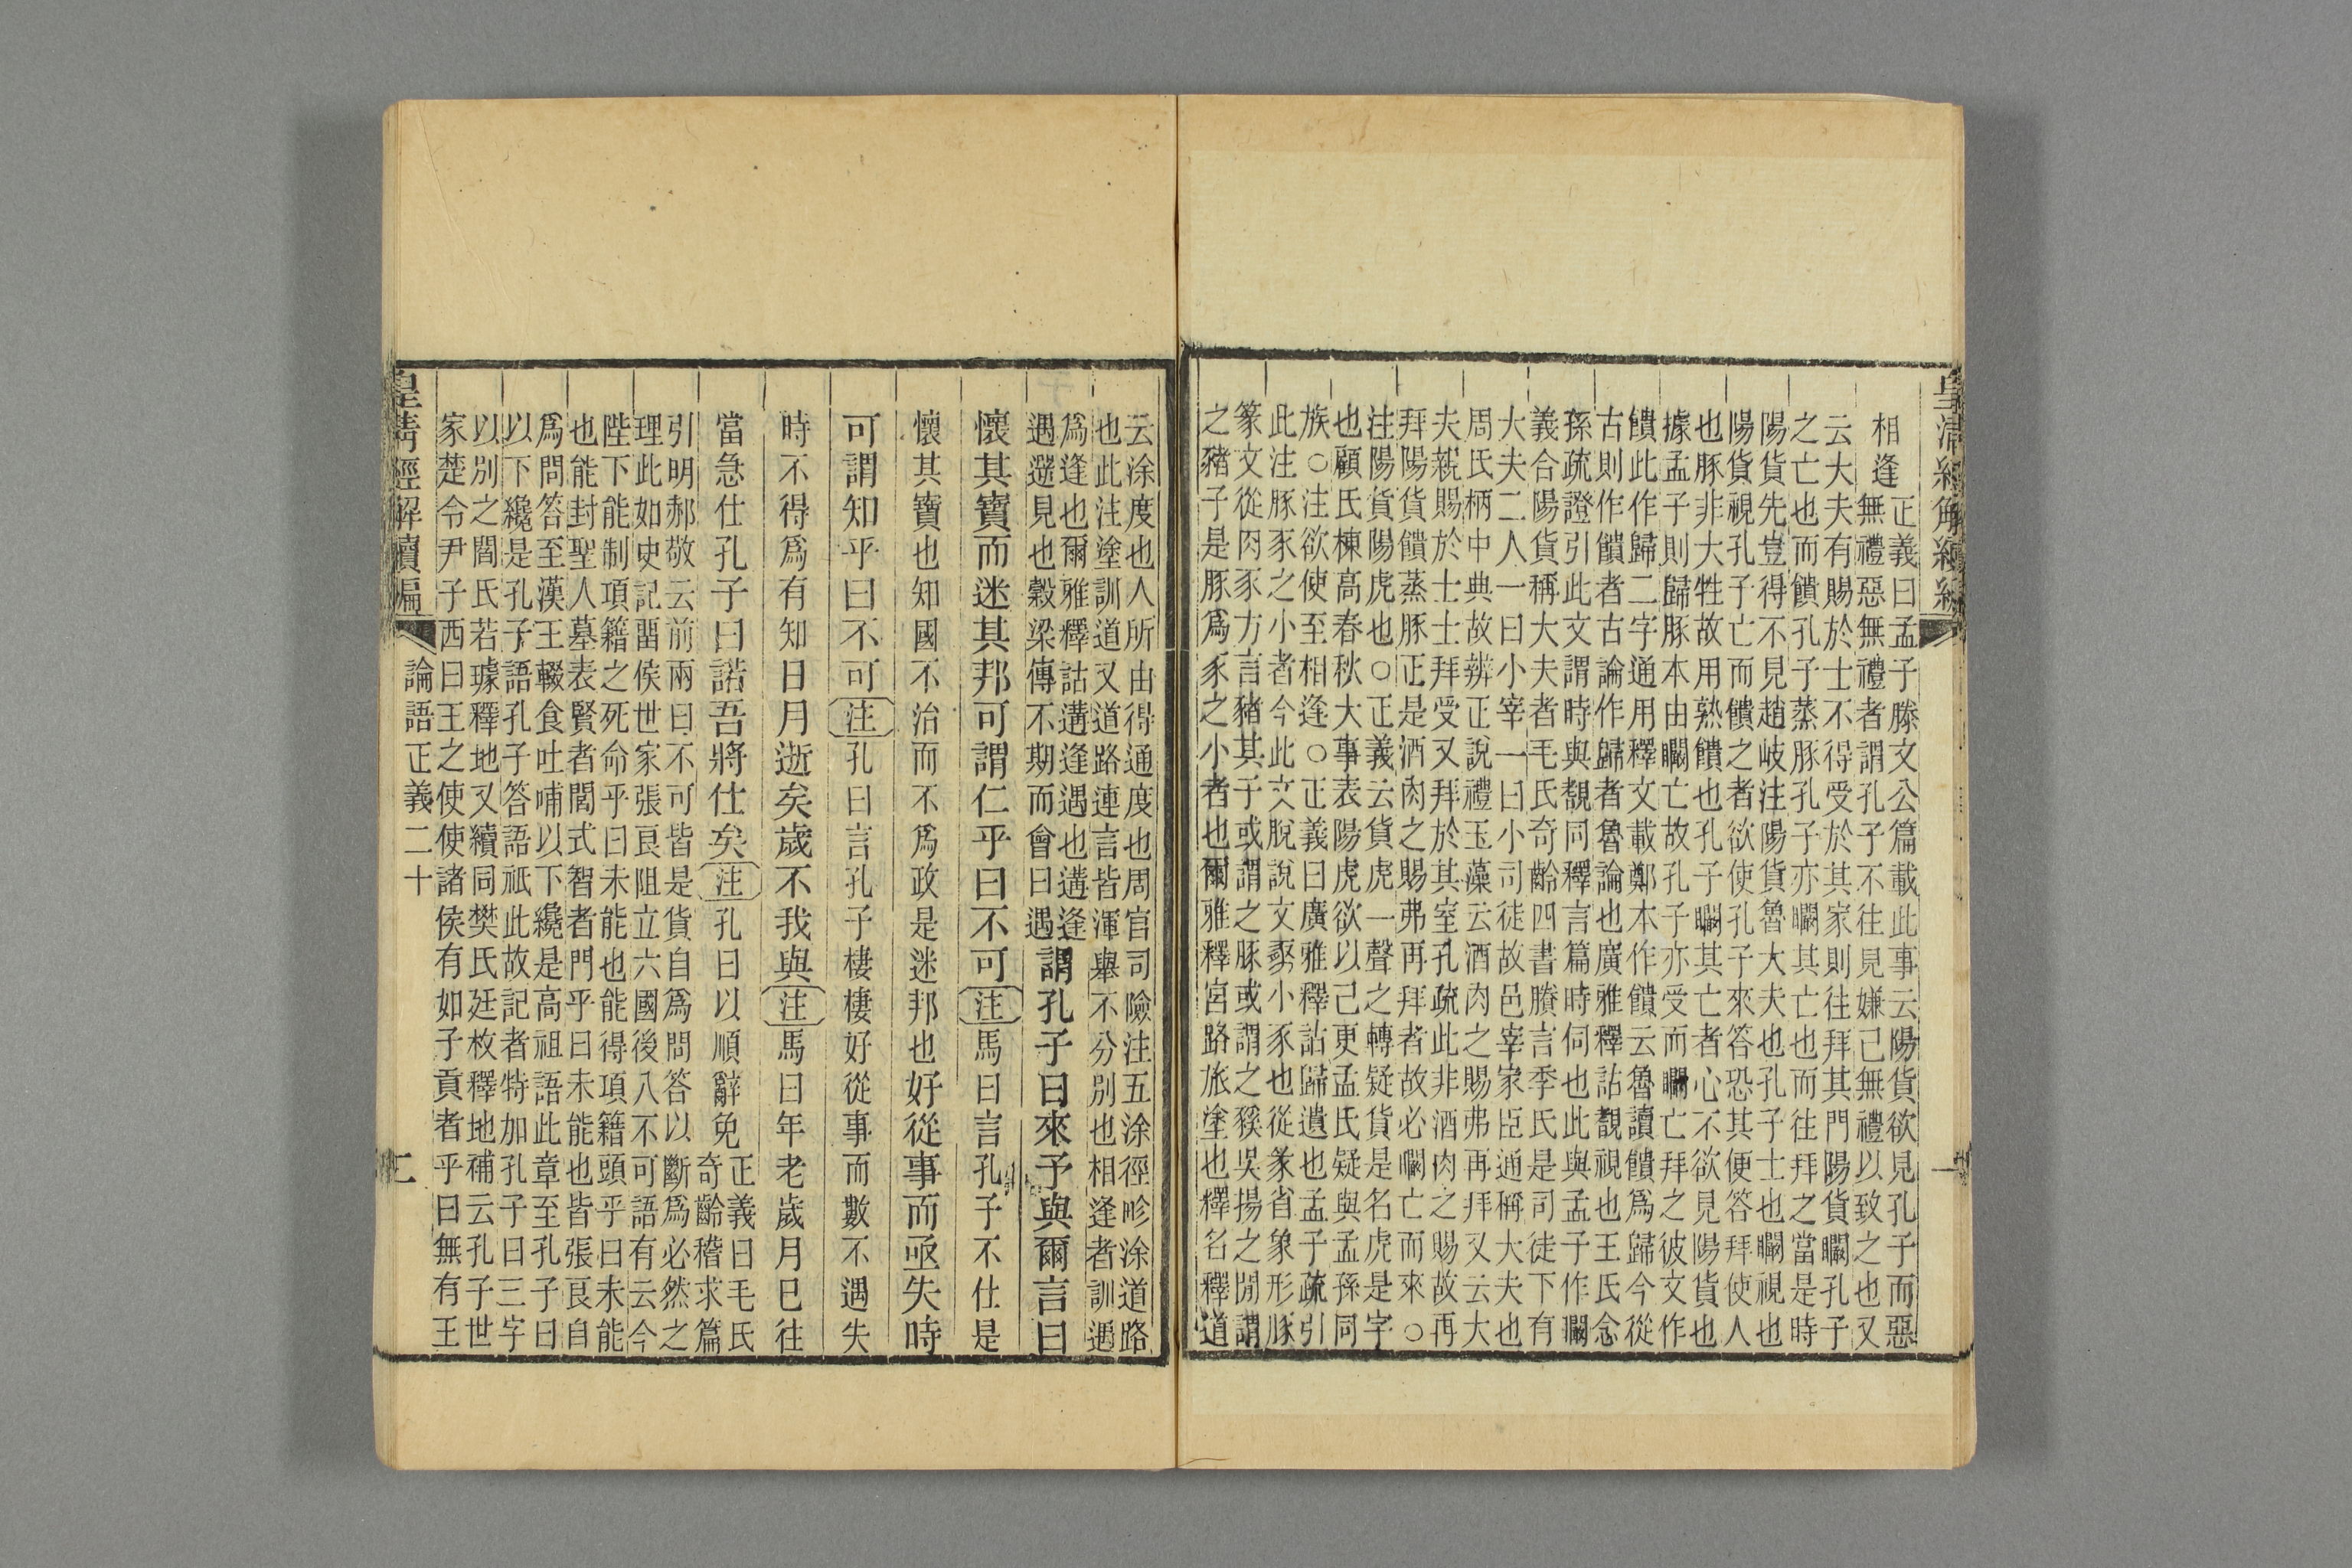 皇清經解續編
一
相逢
正義曰孟子滕文公篇載此事云陽貨欲見孔子而惡
無禮惡無禮者謂孔子不往見嫌己無禮以致之也又
云大夫有賜於士不得受於其家則往拜其門陽貨矙孔子
之亡也而饋孔子蒸豚孔子亦矙其亡也而往拜之當是時
陽貨先豈得不見趙岐注陽貨魯大夫也孔子士也矙視也
陽貨視孔子亡而饋之者欲使孔子來答恐其便答拜使人
也豚非大牲故用熟饋也孔子矙其亡者心不欲見陽貨也
據孟子則歸豚本由矙亡故孔子亦受而矙亡拜之彼文作
饋此作歸二字通用釋文載鄭本作饋云魯讀饋爲歸今從
古則作饋者古論作歸者魯論也廣雅釋詁覩視也王氏念
孫疏證引此文謂時與覩同釋言篇時伺也此與孟子作矙
義合陽貨稱大夫者毛氏奇齡四書賸言季氏是司徒下有
大夫二人一曰小宰一曰小司徒故邑宰家臣通稱大夫也
周氏柄中典故辨正說禮玉藻云酒肉之賜弗再拜又云大
夫親賜於士士拜受又拜於其室孔疏此非酒肉之賜故再
拜陽貨饋蒸豚正是酒肉之賜弗再拜者故必矙亡而來○
注陽貨陽虎也○正義云貨虎一聲之轉疑貨是名虎是字
也顧氏棟高春秋大事表陽虎欲以己更孟氏疑與孟孫同
族○注欲使至相逢○正義曰廣雅釋詁歸遺也孟子疏引
此注豚豕之小者今此文脫說文豯小豕也從彖省象形豚
篆文從肉豕方言豬其子或謂之豚或謂之豯吳揚之閒謂
之豬子是豚爲豕之小者也爾雅釋宮路旅塗也釋名釋道
云涂度也人所由得通度也周官司險注五涂徑畛涂道路
也此注塗訓道又道路連言皆渾舉不分別也相逢者訓遇
爲逢也爾雅釋詁遘逢遇也遘逢
遇遻見也穀梁傳不期而會曰遇
謂孔子曰來予與爾言曰
懷其寶而迷其邦可謂仁乎曰不可注馬曰言孔子不仕是
懷其寶也知國不治而不爲政是迷邦也好從事而亟失時
可謂知乎曰不可注孔曰言孔子棲棲好從事而數不遇失
時不得爲有知日月逝矣歲不我與注馬曰年老歲月已往
當急仕孔子曰諾吾將仕矣注孔曰以順辭免
正義曰毛氏
奇齡稽求篇
引明郝敬云前兩曰不可皆是貨自爲問答以斷爲必然之
理此如史記留侯世家張良阻立六國後八不可語有云今
陛下能制項籍之死命乎曰未能也能得項籍頭乎曰未能
也能封聖人墓表賢者閭式智者門乎曰未能也皆張良自
爲問答至漢王輟食吐哺以下纔是高祖語此章至孔子曰
以下纔是孔子語孔子答語祇此故記者特加孔子曰三字
以別之閻氏若璩釋地又續同樊氏廷枚釋地補云孔子世
家楚令尹子西曰王之使使諸侯有如子貢者乎曰無有王
皇清經解續編
論語正義二十
二